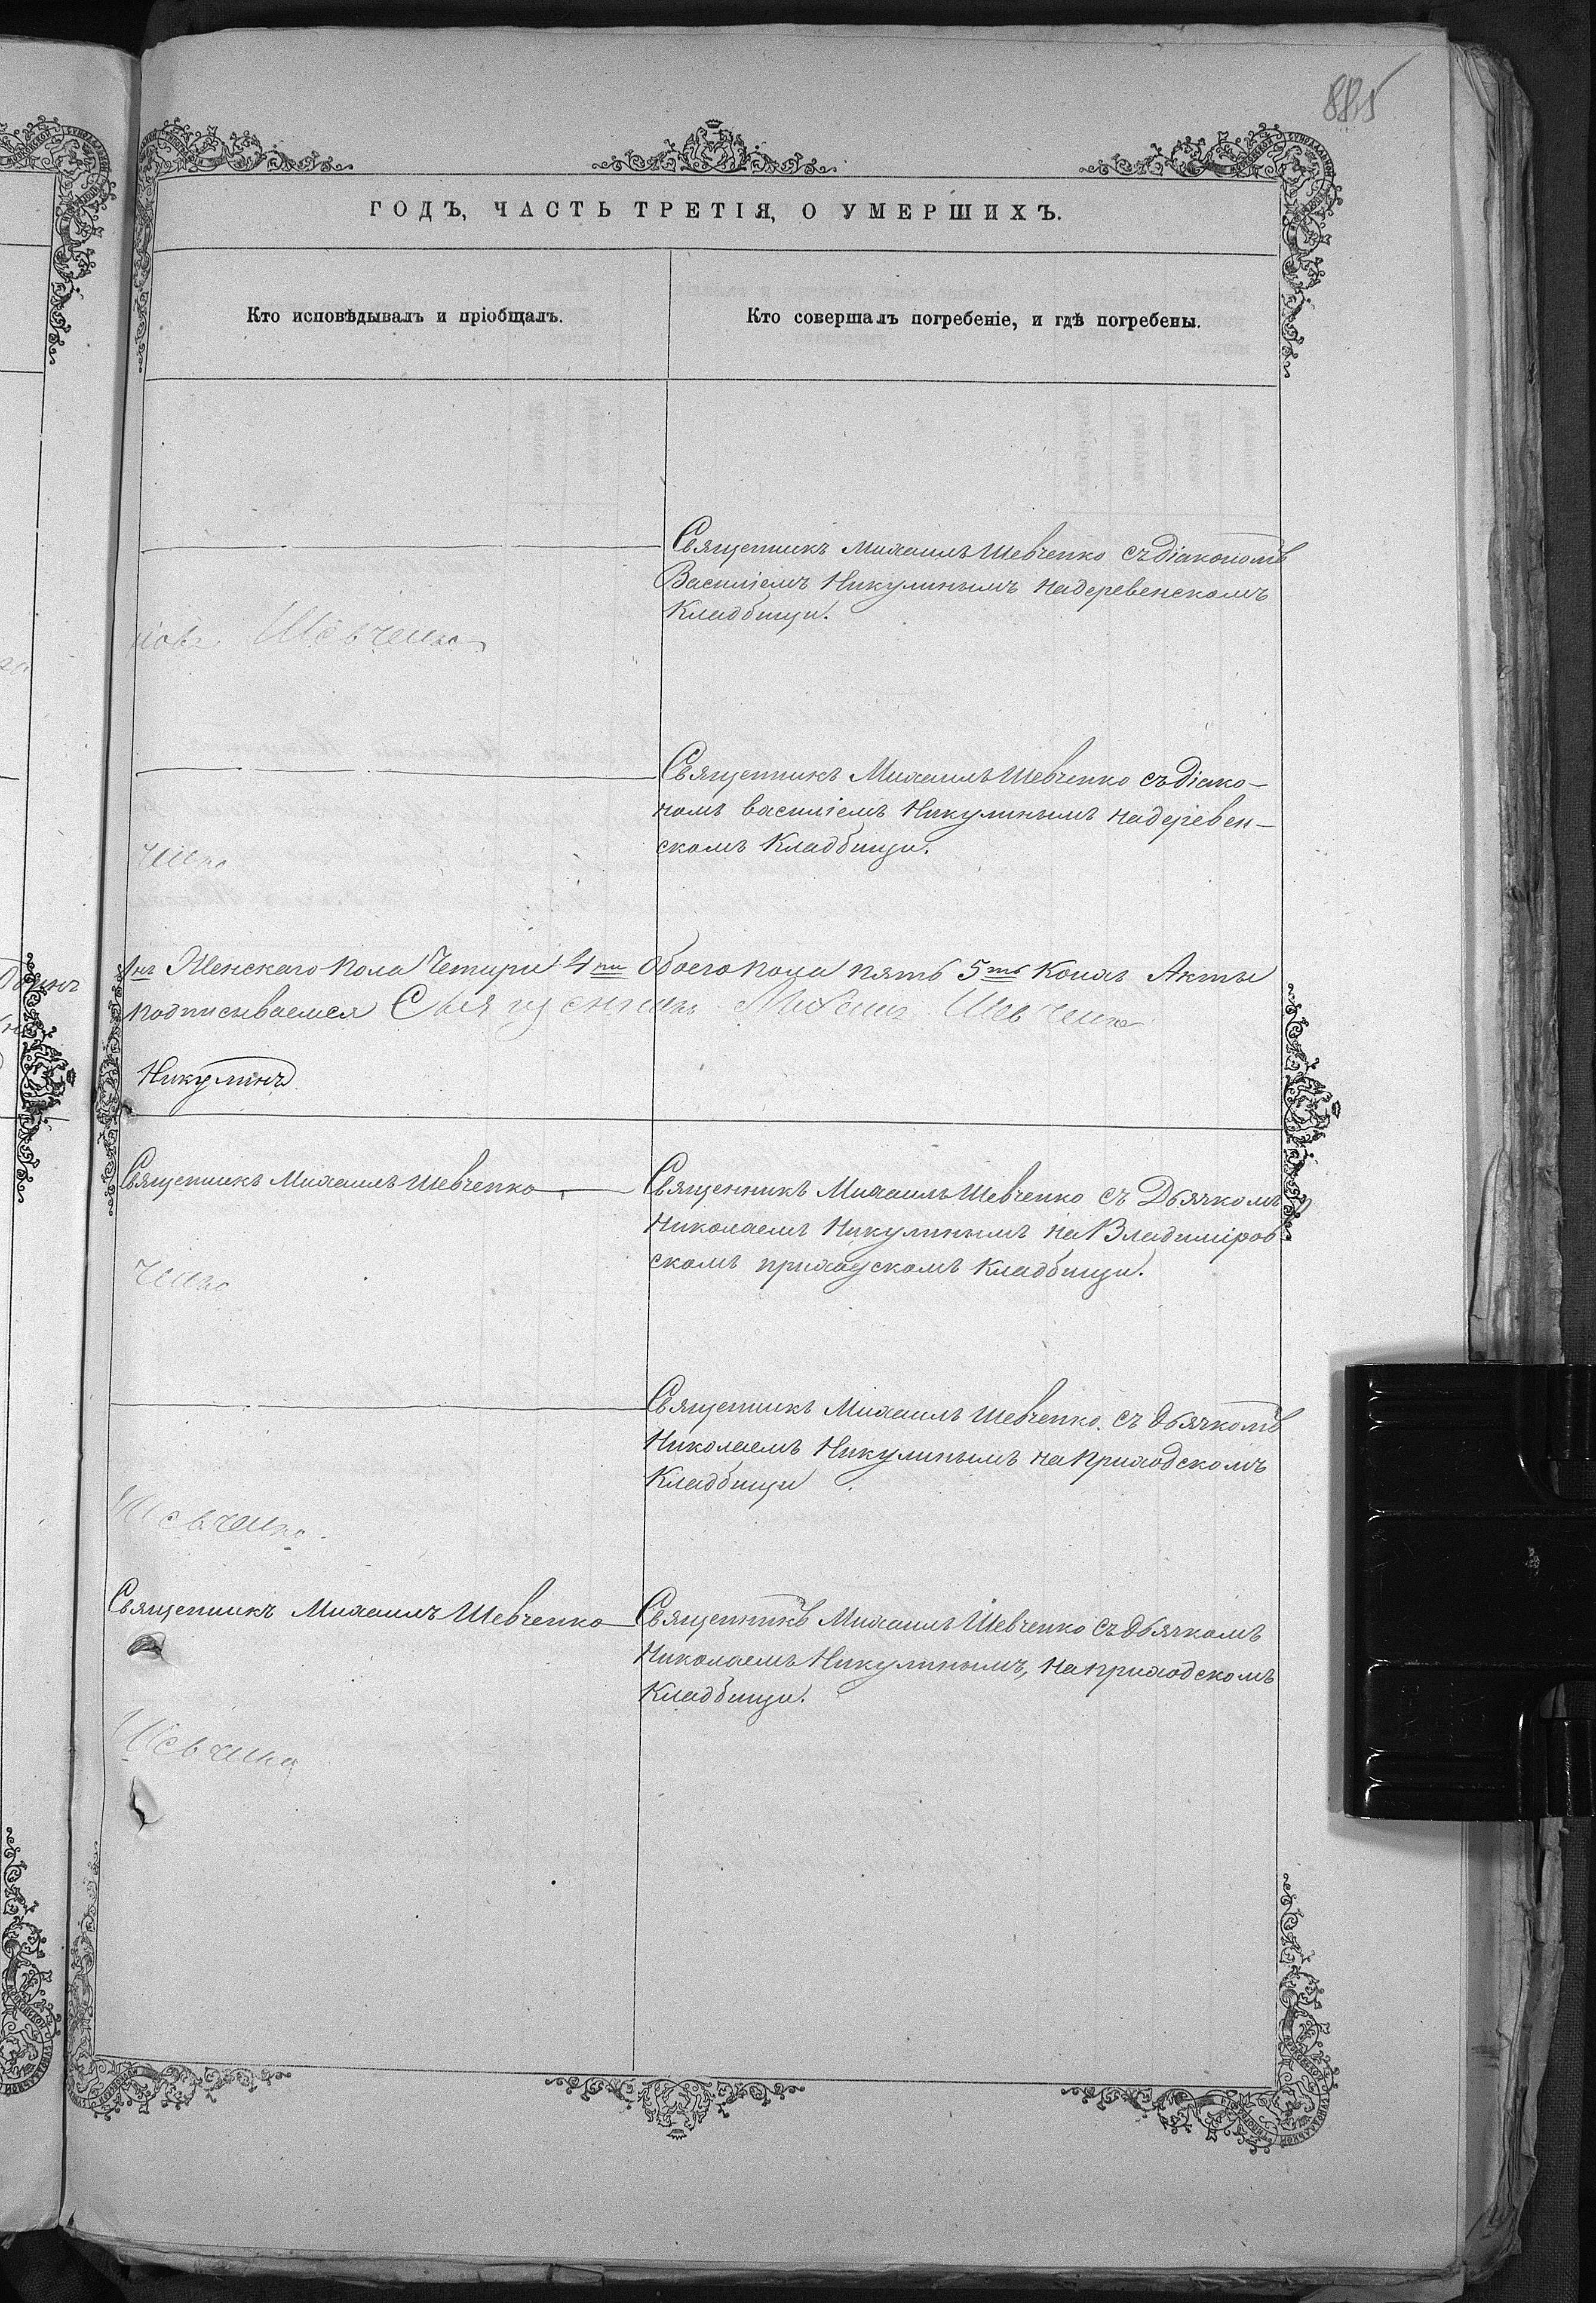 ГОДЪ, ЧАСТЬ ТРЕТІЯ, О УМЕРШИХЪ.
Кто исповѣдывалъ и пріобщалъ.
Кто совершалъ погребеніе, и гдѣ погребены.
Священникъ Михаилъ Шевченко съ діакономъ
Василіемъ Никулинымъ на деревенскомъ
Кладбищи.
Шевченко
Священникъ Михаилъ Шевченко съ діако-
номъ василіемъ Никулинымъ на деревен-
скомъ Кладбищи.
ченко
1нъ Женскаго пола Четыри 4ри Обоего пола пять 5ть Коихъ Акты
подписываемся Священникъ Михаилъ Шевченко
Никулинъ
Священникъ Михаилъ Шевченко
Священникъ Михаилъ Шевченко съ Дьячкомъ
Николаемъ Никулинымъ на Владиміров
скомъ приходскомъ Кладбищи.
ченко
Священникъ Михаилъ Шевченко съ дьячкомъ
Николаемъ Никулинымъ на Приходскомъ
Кладбищи
Шевченко.
Священникъ Михаилъ Шевченко
Священникъ Михаилъ Шевченко съ дьячкомъ
Николаемъ Никулинымъ, на приходскомъ
Кладбищи.
Шевченко